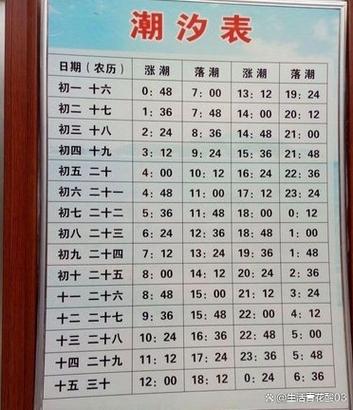 潮汐表
日期（农历） 涨潮 落潮 涨潮 落潮
初一 十六 0：48 7：00 13：12 19：24
初二 十七 1：36 7：48 14：00 20：12
初三 十八 2：24 8：36 14：48 21：00
初四 十九 3：12 9：24 15：36 21：48
初五 二十 4：00 10：12 16：24 22：36
初六 二十一 4：48 11：00 17：12 23：24
初七 二十二 5：36 11：48 18：00 0：12
初八 二十三 6：24 12：36 18：48 1：00
初九 二十四 7：12 13：24 19：36 1：48
初十 二十五 8：00 14：12 20：24 2：36
十一 二十六 8：48 15：00 21：12 3：24
十二 二十七 9：36 15：48 22：00 4：12
十三 二十八 10：24 16：36 22：48 5：00
十四 二十九 11：12 17：24 23：36 5：48
十五 三十 12：00 18：12 0：24 6：36